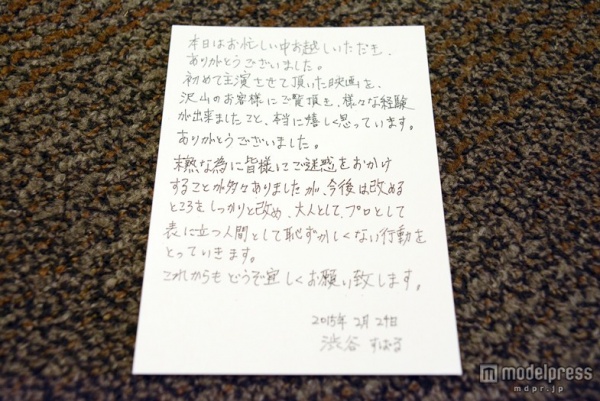 本日はお忙しい中お越しいただき、
ありがとうございました。
初めて主演させて頂いた映画を、
沢山のお客様にご覧頂き、様々な経験
が出来ましたこと、本当に嬉しく思っています。
ありがとうございました。
未熟な為に皆様にご迷惑をおかけ
することが多々ありましたが、今後は改める
ところをしっかりと改め、大人として、プロとして
表に立つ人間として恥ずかしくない行動を
とっていきます。
これからもどうぞ宜しくお願い致します。
2015年2月24日
渋谷 すばる
modelpress
mdpr.jp